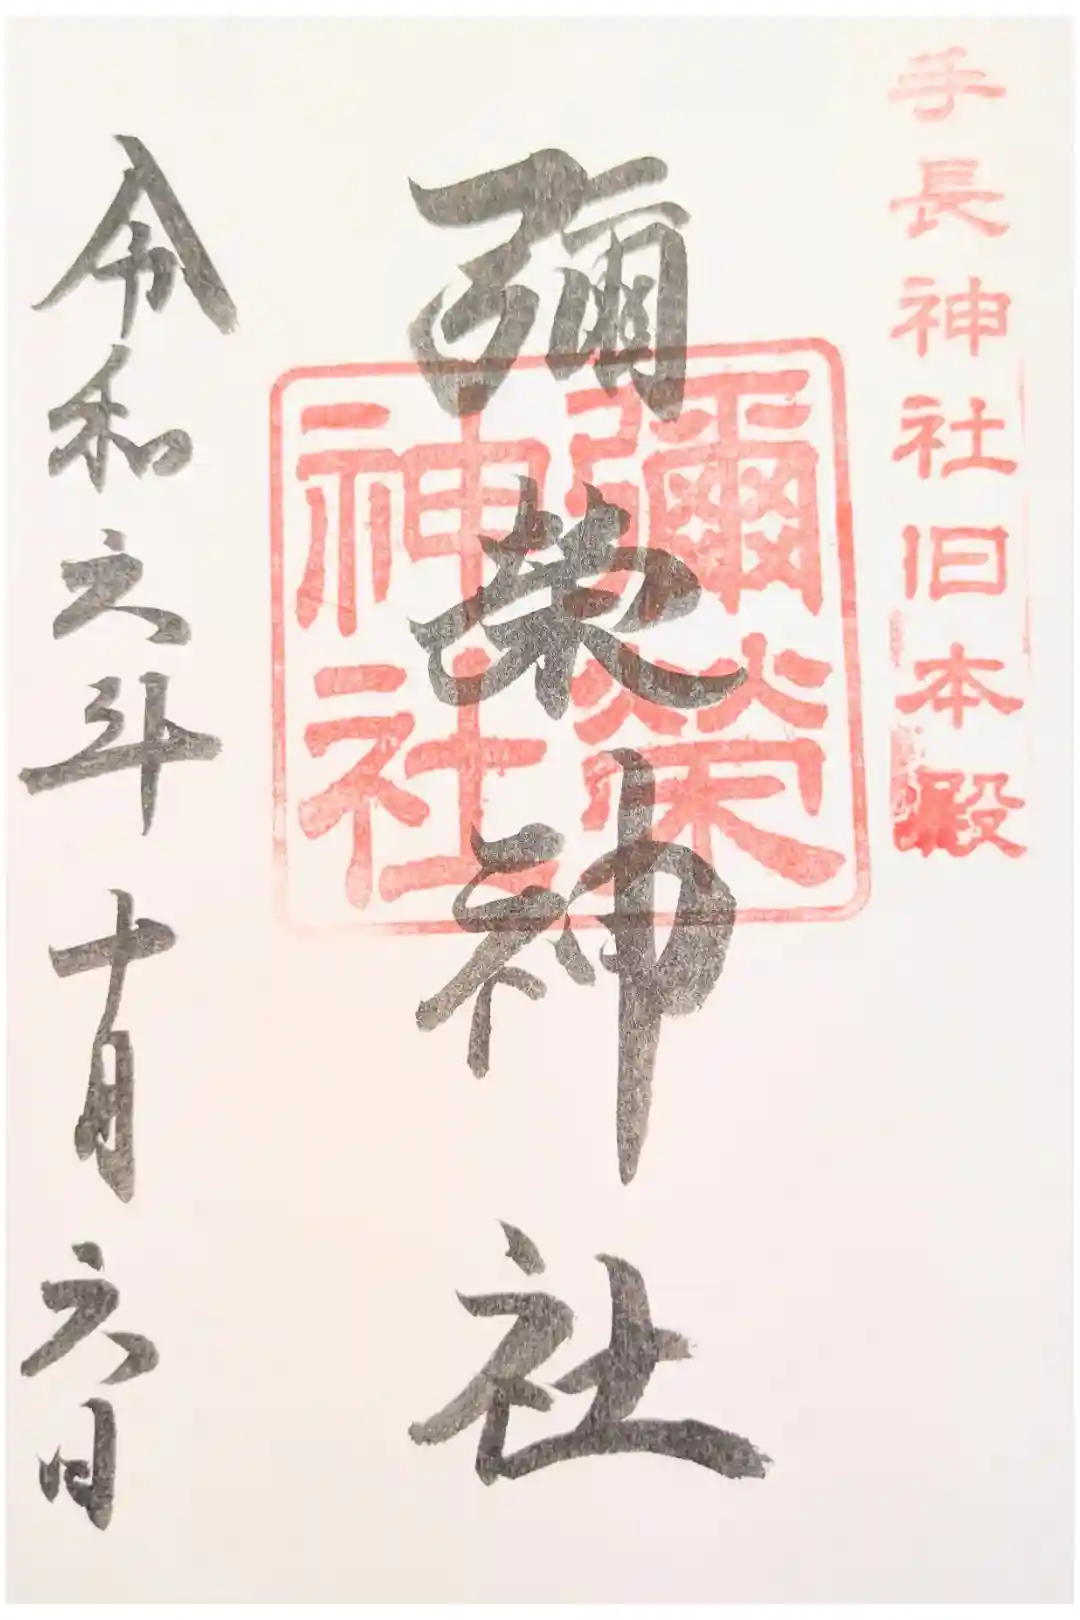 手長神社旧本殿
彌栄神社
彌榮
神社
令和元年十月六日